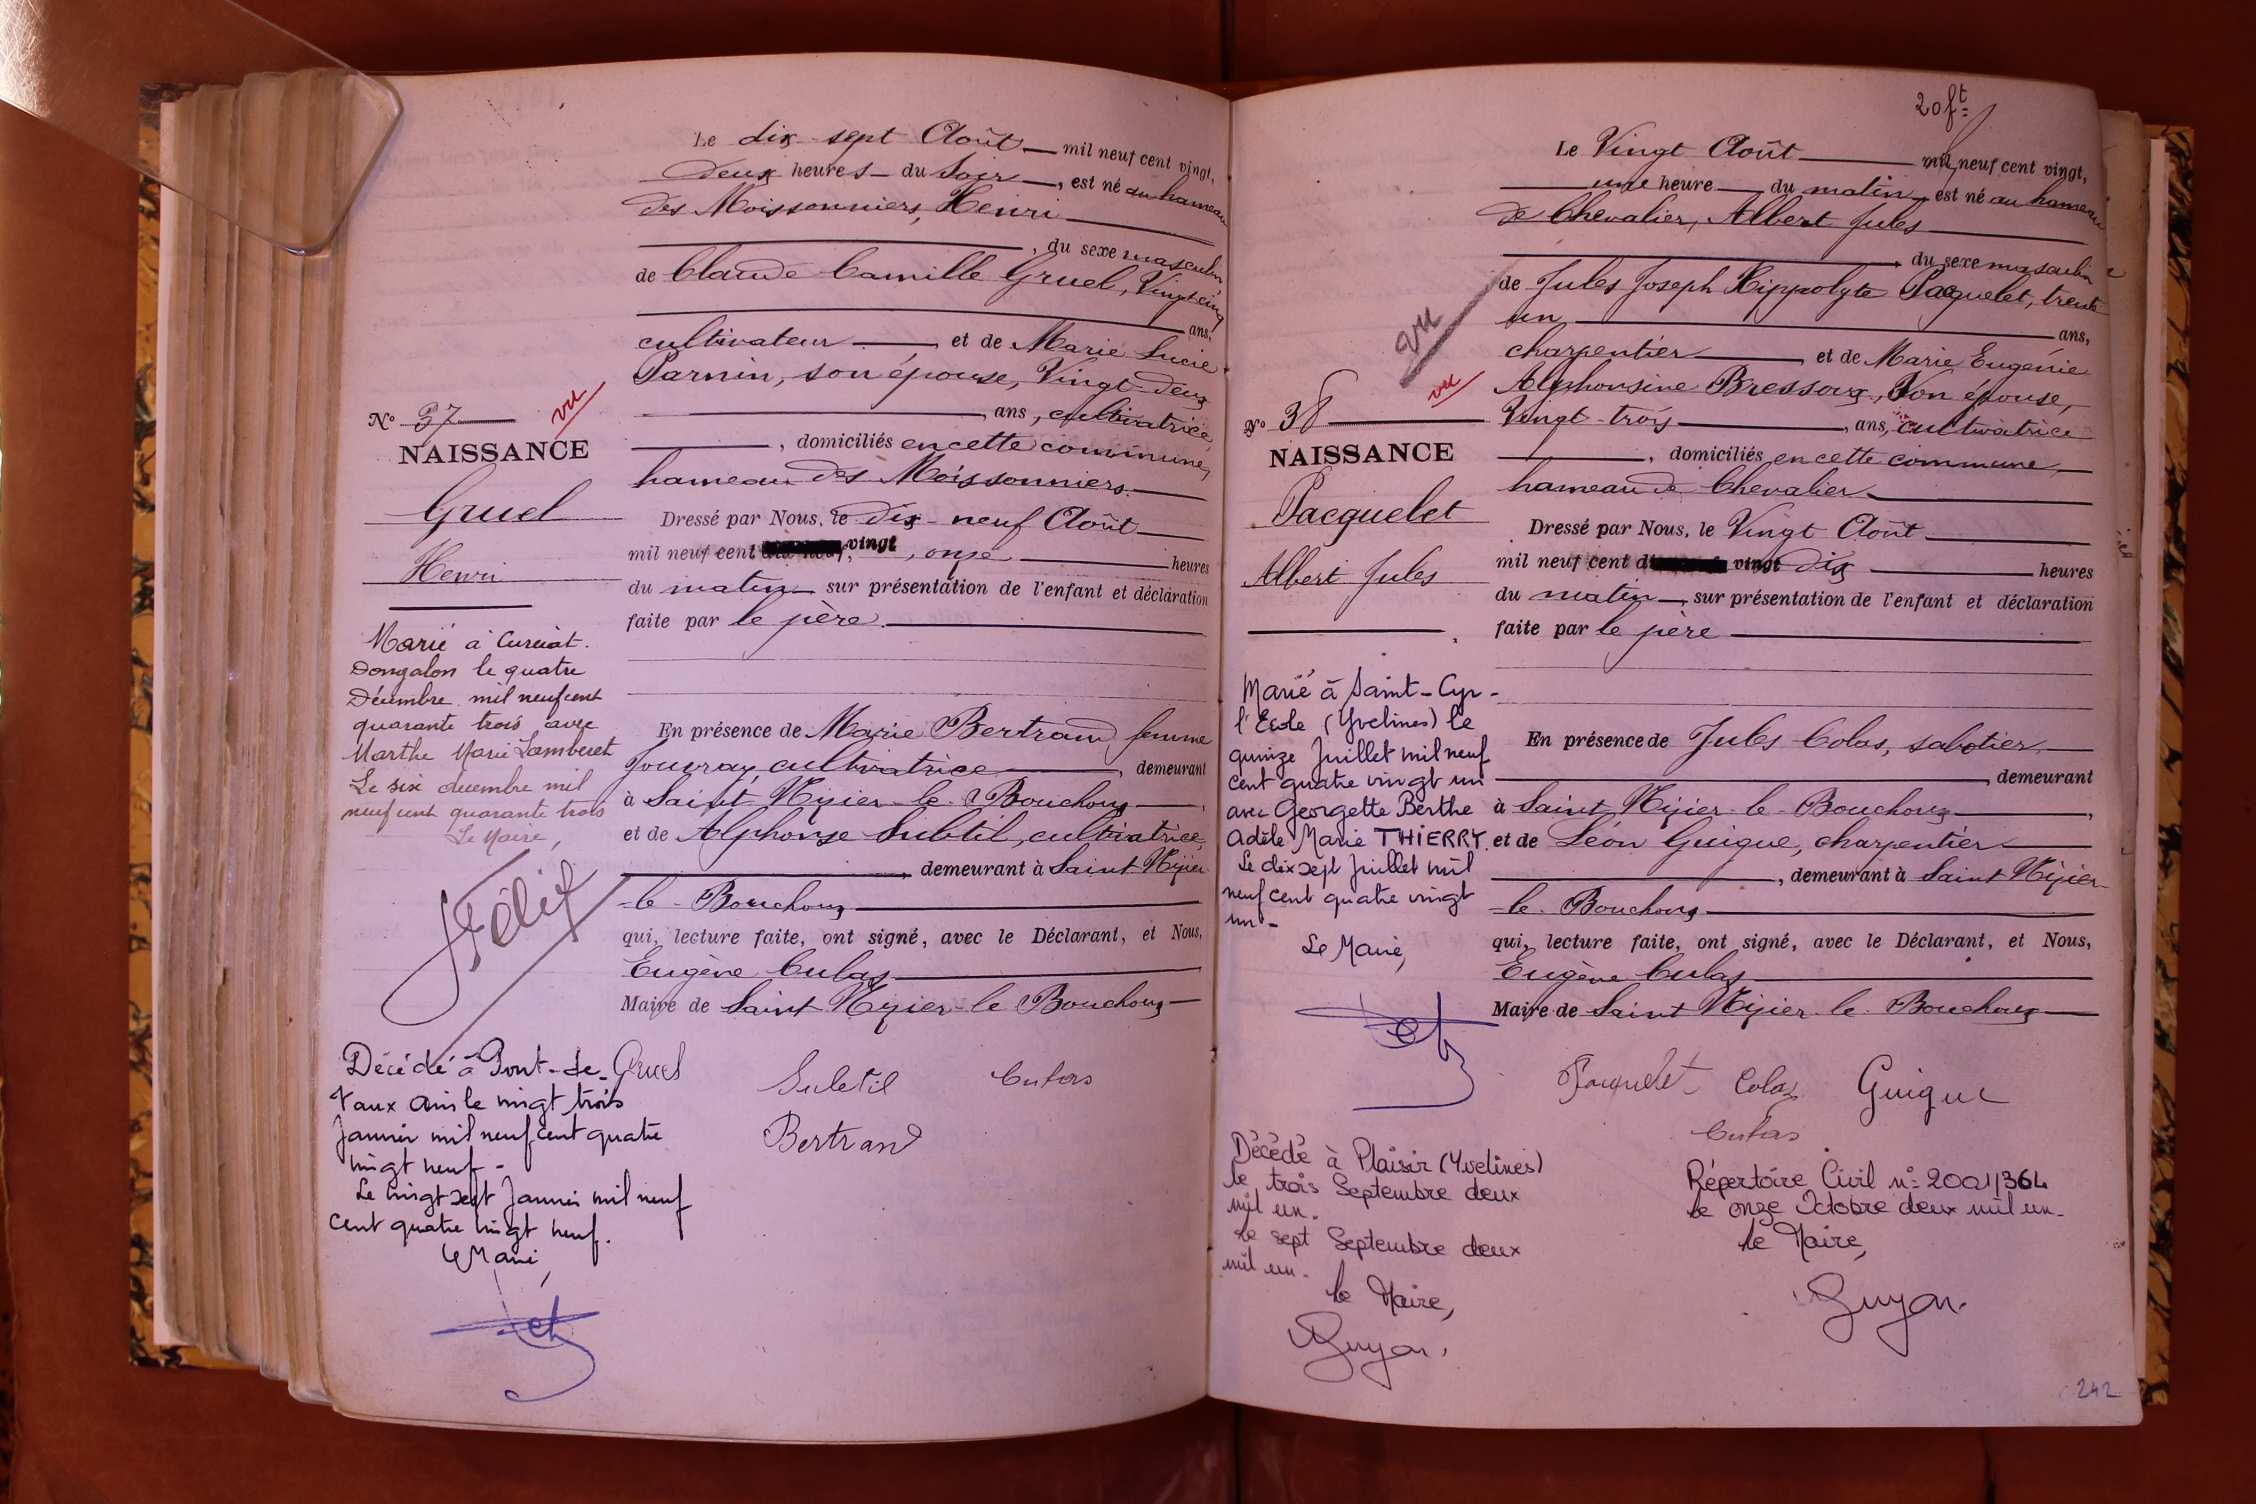 Le dix sept Août mil neuf cent vingt,
deux heures du Soir, est né au hameau
des Moissonniers, Henri
, du sexe masculin
de Claude Camille Gruel, Vingt cinq
ans,
cultivateur et de Marie Lucie
Parnin, son épouse, Vingt-deux
ans, cultivatrice
, domiciliés en cette commune,
hameau des Moissonniers.
Dressé par Nous, le dix-neuf Août
mil neuf cent vingt, onze heures
du matin sur présentation de l'enfant et déclaration
faite par le père.
En présence de Marie Bertrand, femme
Jouvray, cultivatrice, demeurant
à Saint Nizier-le-Bouchoux,
et de Alphonse Subtil, cultivatrice,
, demeurant à Saint Nizier
-le-Bouchoux
qui, lecture faite, ont signé, avec le Déclarant, et Nous,
Eugène Culas
Maire de Saint Nizier-le Bouchoux
Gruel Subtil Culas
Bertrand
No 37
vu
NAISSANCE
Gruel
Henri
Marié à Curciat.
Dongalon le quatre
Décembre mil neuf cent
quarante trois avec
Marthe Marie Lamberet
Le six décembre mil
neuf cent quarante trois
Le Maire,
Décédé à Pont-de-
Vaux Ain le vingt trois
Janvier mil neuf cent quatre
vingt neuf -
Le vingt sept Janvier mil neuf
cent quatre vingt neuf.
Le Maire,
20 ft
Le Vingt Août mil neuf cent vingt,
une heure du matin est né au hameau
de Chevalier, Albert Jules
du sexe masculin
de Jules Joseph Hippolyte Pacquelet, trente
un ans,
charpentier et de Marie Eugénie
Alphonsine Bressoux, Son épouse,
Vingt-trois, ans, cultivatrice
, domiciliés en cette commune,
hameau de Chevalier
Dressé par Nous, le Vingt Août
mil neuf cent vingt dix heures
du matin, sur présentation de l'enfant et déclaration
faite par le père
En présence de Jules Colas, sabotier,
, demeurant
à Saint Nizier-le-Bouchoux,
et de Léon Guigue, charpentier
, demeurant à Saint Nizier-
-le-Bouchoux
qui, lecture faite, ont signé, avec le Déclarant, et Nous,
Eugène Culas
Maire de Saint Nizier-le-Bouchoux
Pacquelet Colas Guigue
Culas
vu
vu
No 38
NAISSANCE
Pacquelet
Albert Jules
Marié à Saint-Cyr-
l'Ecole (Yvelines) le
quinze Juillet mil neuf
cent quatre vingt un
avec Georgette Berthe
Adèle Marie THIERRY.
Le dix sept Juillet mil
neuf cent quatre vingt
un -
Le Maire,
Décédé à Plaisir (Yvelines)
le trois Septembre deux
mil un.
Le sept Septembre deux
mil un.
Le Maire,
Guyon.
Répertoire Civil n° 2001/364
Le onze Octobre deux mil un.
Le Maire,
Guyon.
242